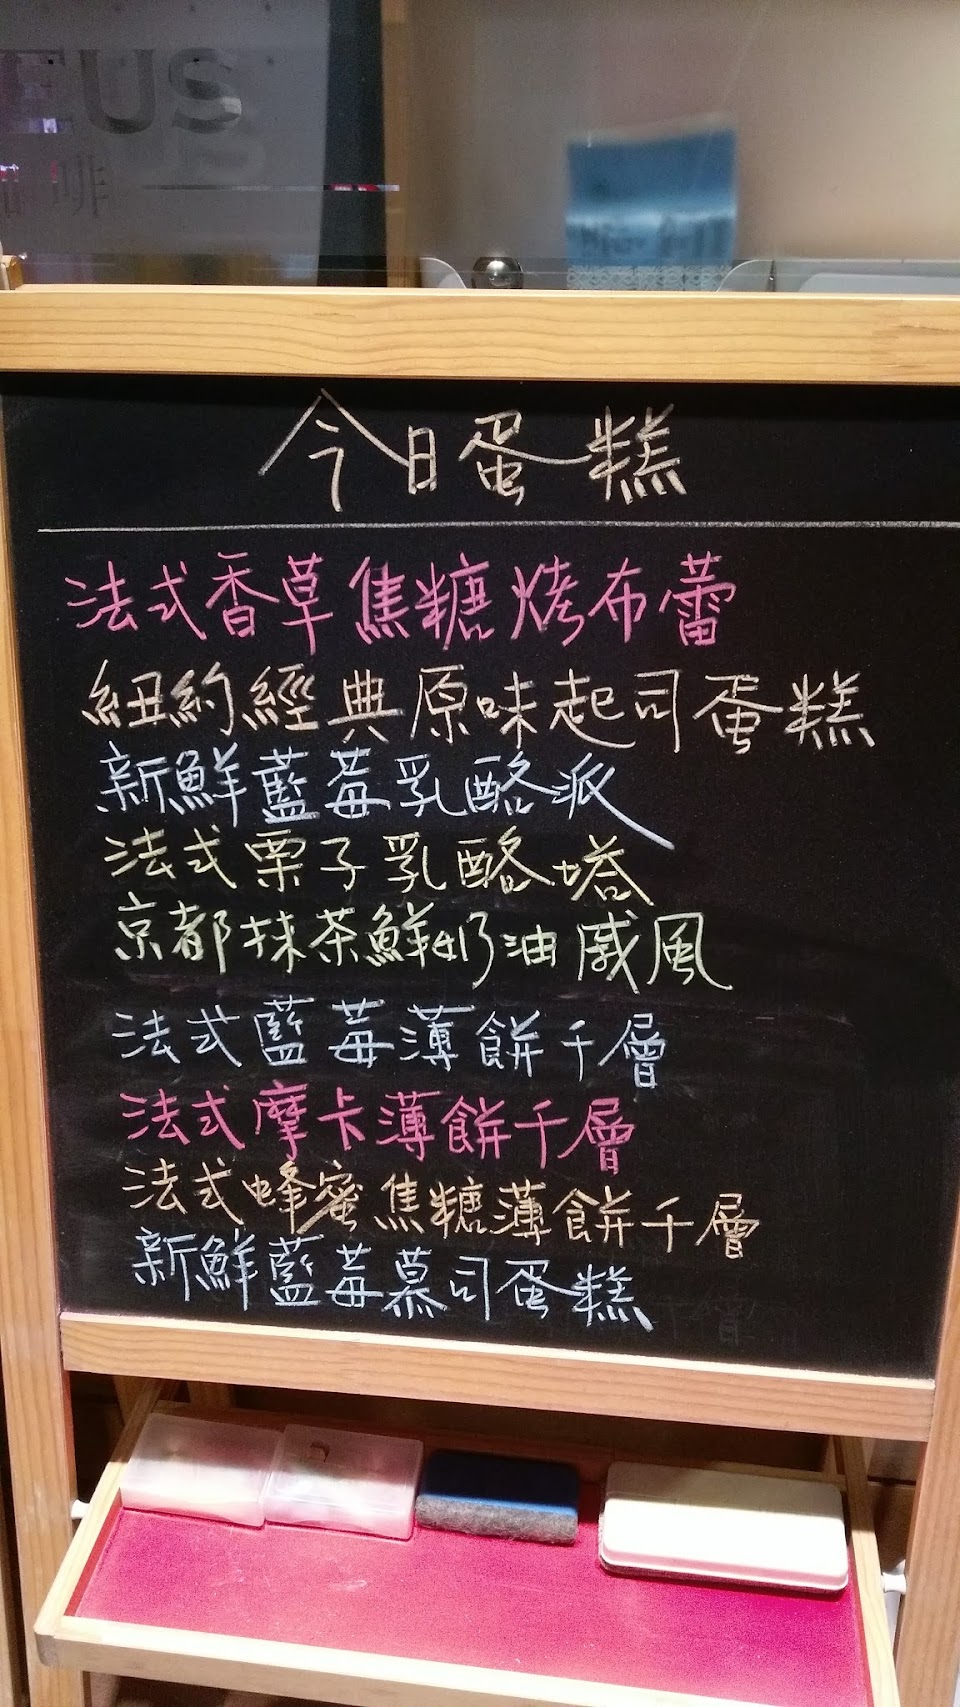 EUS
啡
今日蛋糕
法式香草焦糖烤布蕾
紐約經典原味起司蛋糕
新鮮藍莓乳酪派
法式栗子乳酪塔
京都抹茶鮮奶油戚風
法式藍莓薄餅千層
法式摩卡薄餅千層
法式蜂蜜焦糖薄餅千層
新鮮藍莓慕司蛋糕